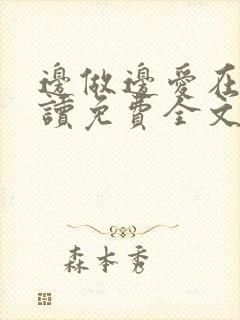 邊做邊愛在
讀免費全文
森本秀